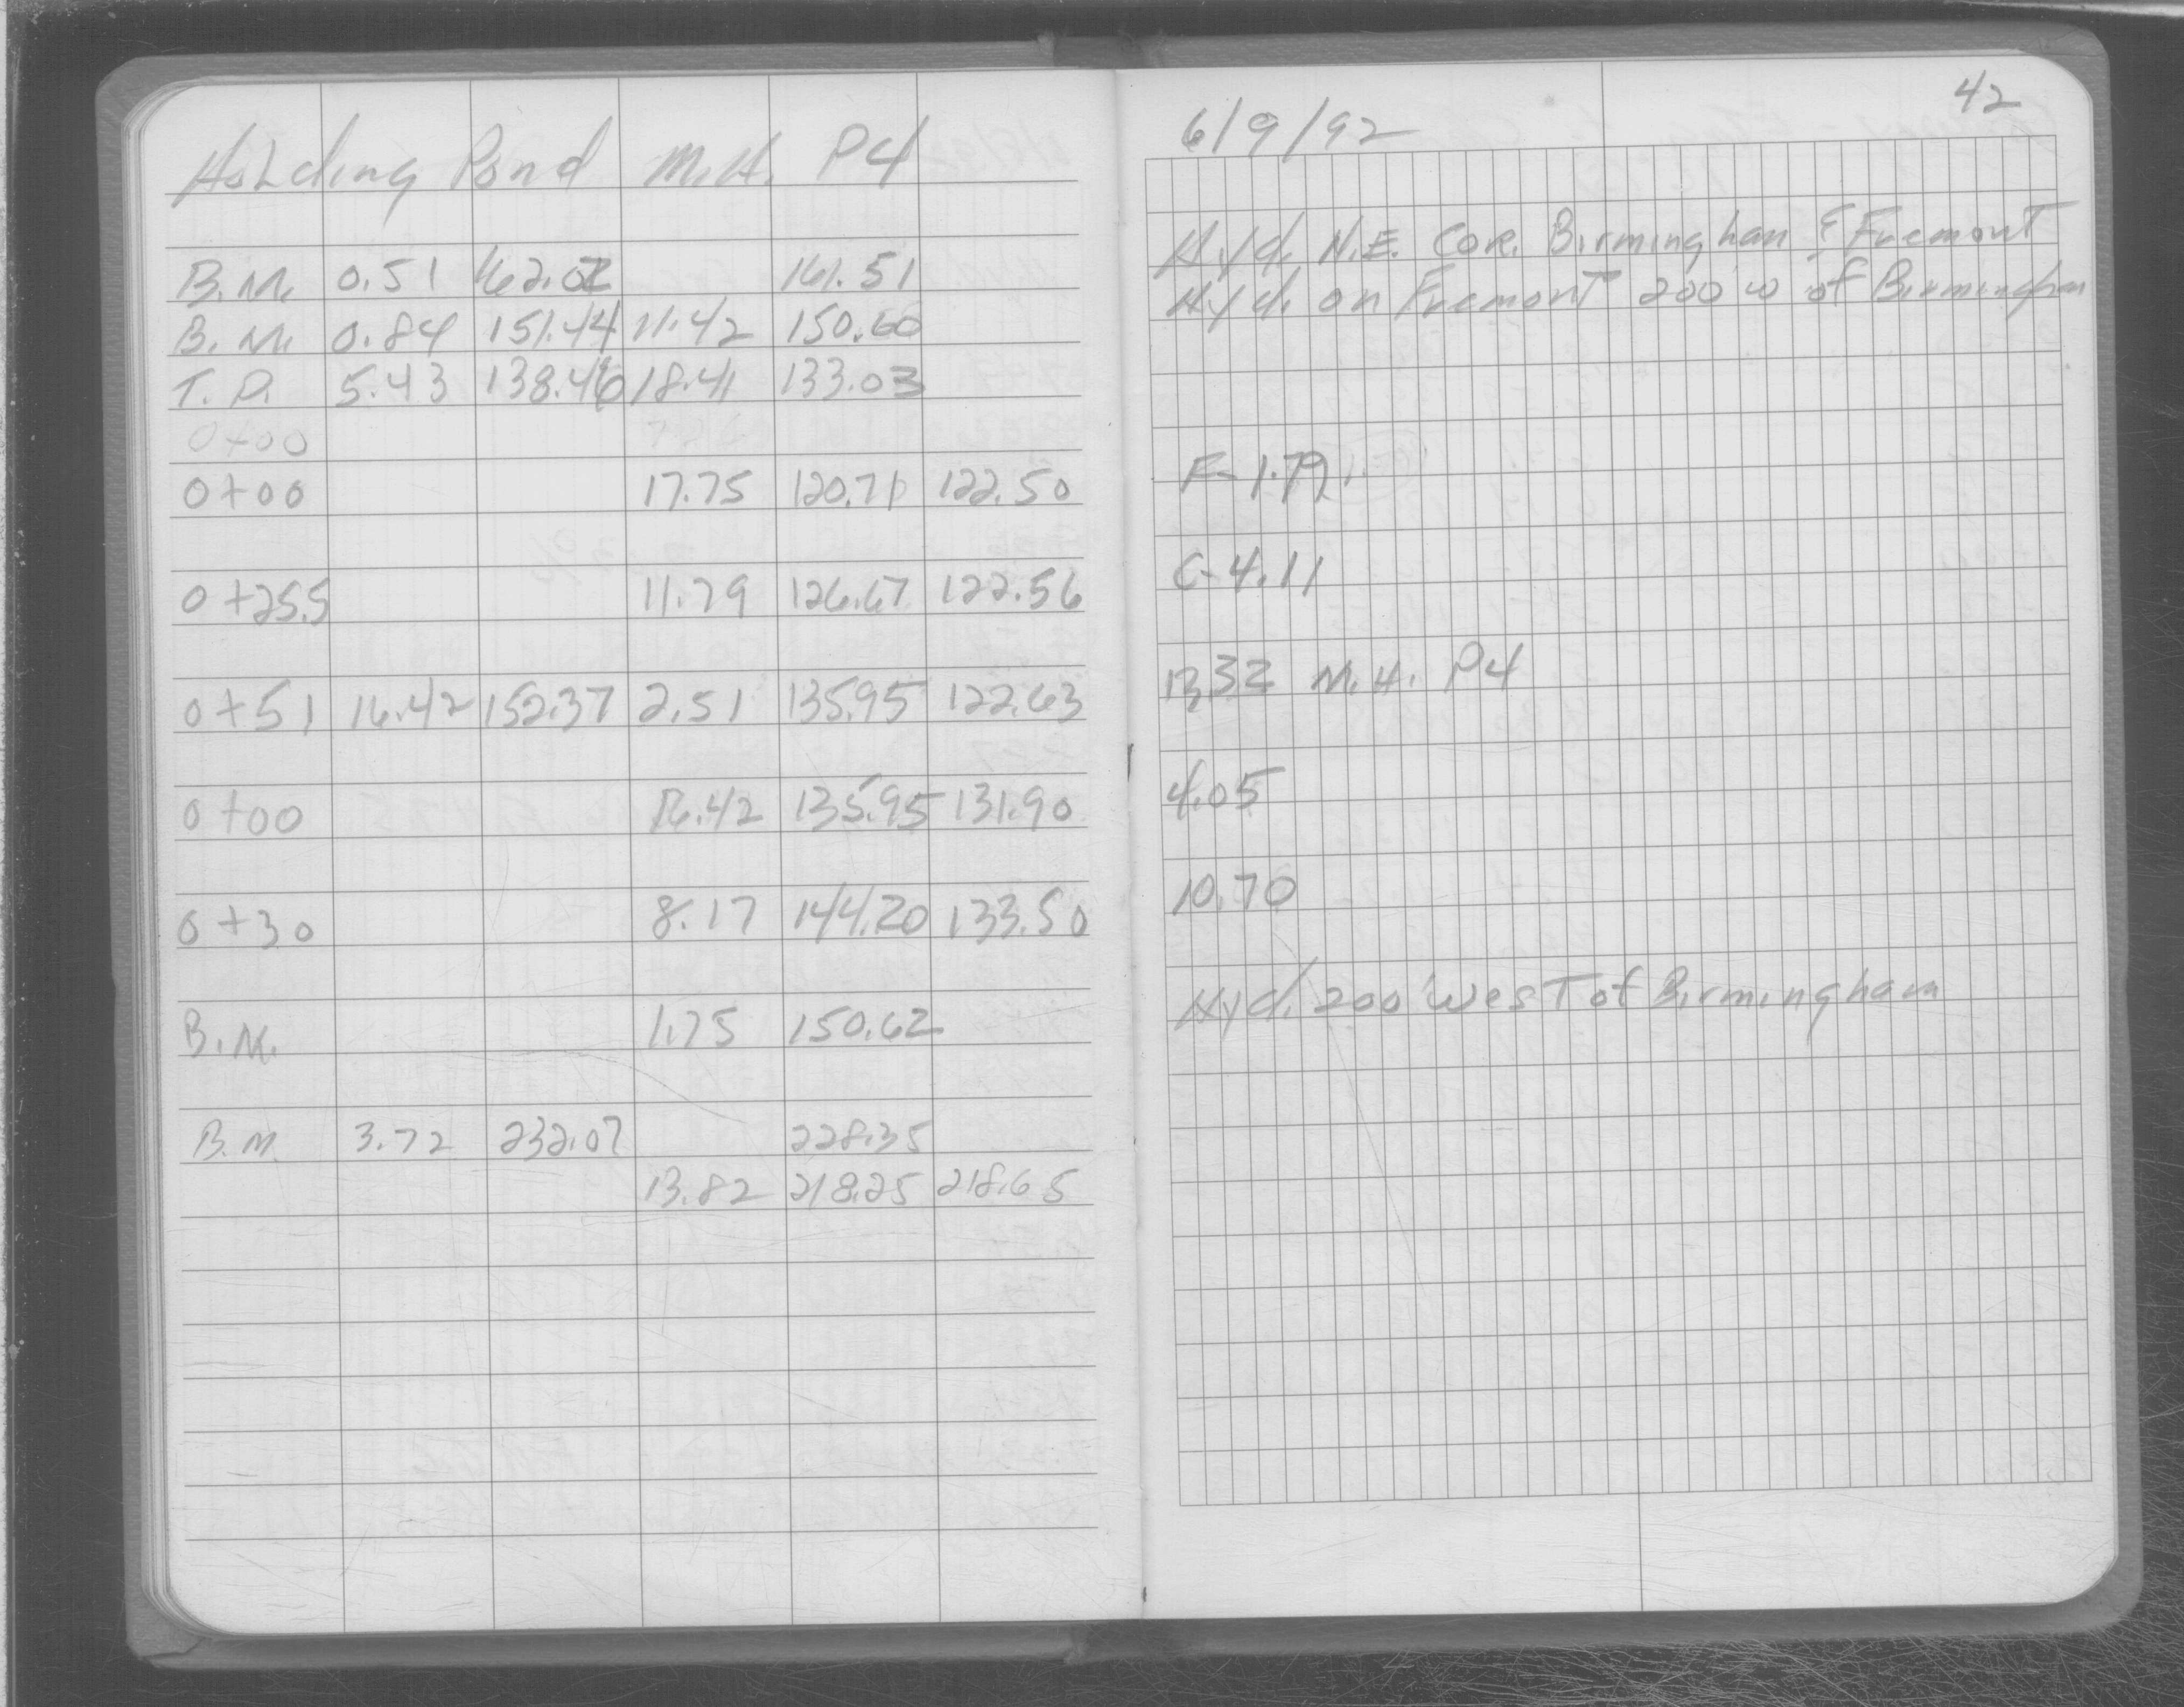 Holding Pond M.H. P4
B.M. 0.51 162.02 161.51
B.M. 0.84 151.44 11.42 150.60
T.P. 5.43 138.46 18.41 133.03
0+00
0+00 17.75 120.71 122.50
0+25.5 11.79 126.67 122.56
0+51 16.42 152.37 2.51 135.95 122.63
0+00 16.42 135.95 131.90
0+30 8.17 144.20 133.50
B.M. 1.75 150.62
B.M. 3.72 232.07 228.35
13.82 218.25 218.65
42
6/9/92
Hyd. N.E. Cor. Birmingham & Fremont
Hyd. on Fremont 200 W of Birmingham
F-1.79
C-4.11
13.32 M.H. P4
4.05
10.70
Hyd. 200' West of Birmingham